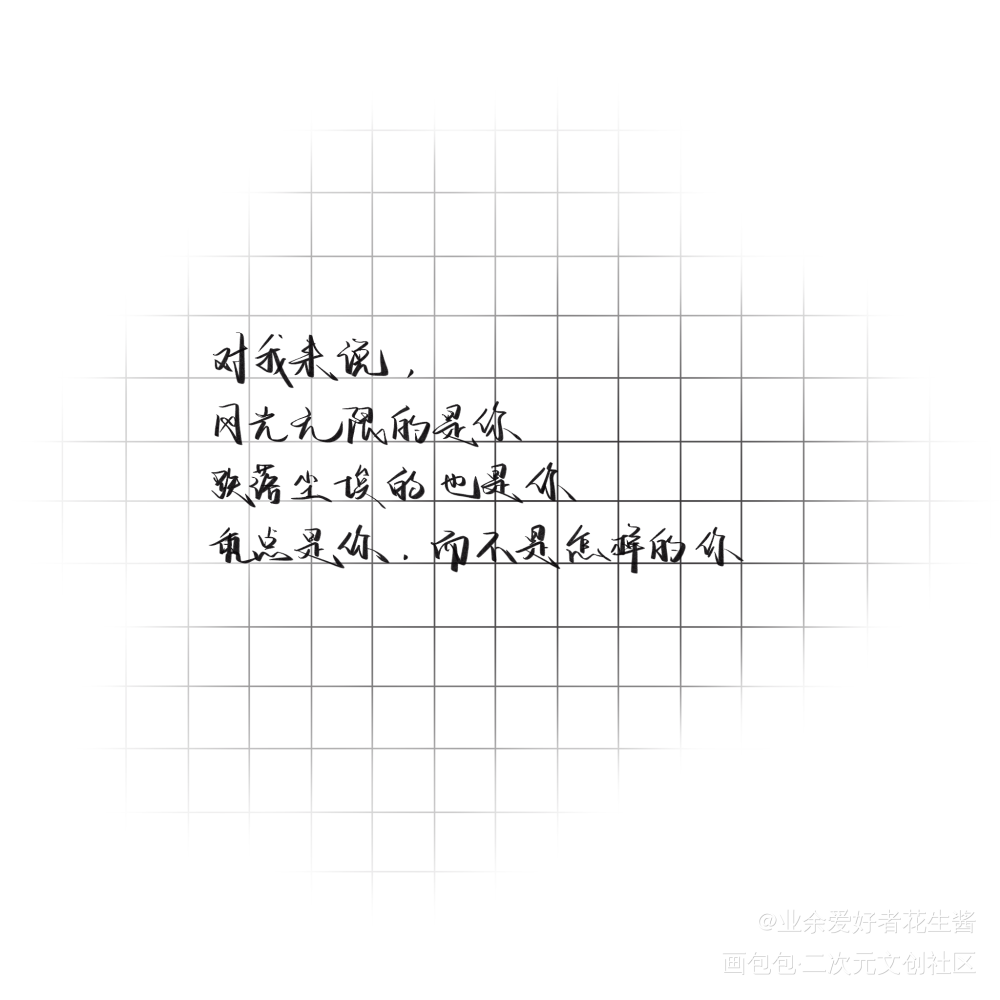 对我来说，
风光无限的是你
跌落尘埃的也是你
重点是你，而不是怎样的你
@业余爱好者花生酱
画包包·二次元文创社区